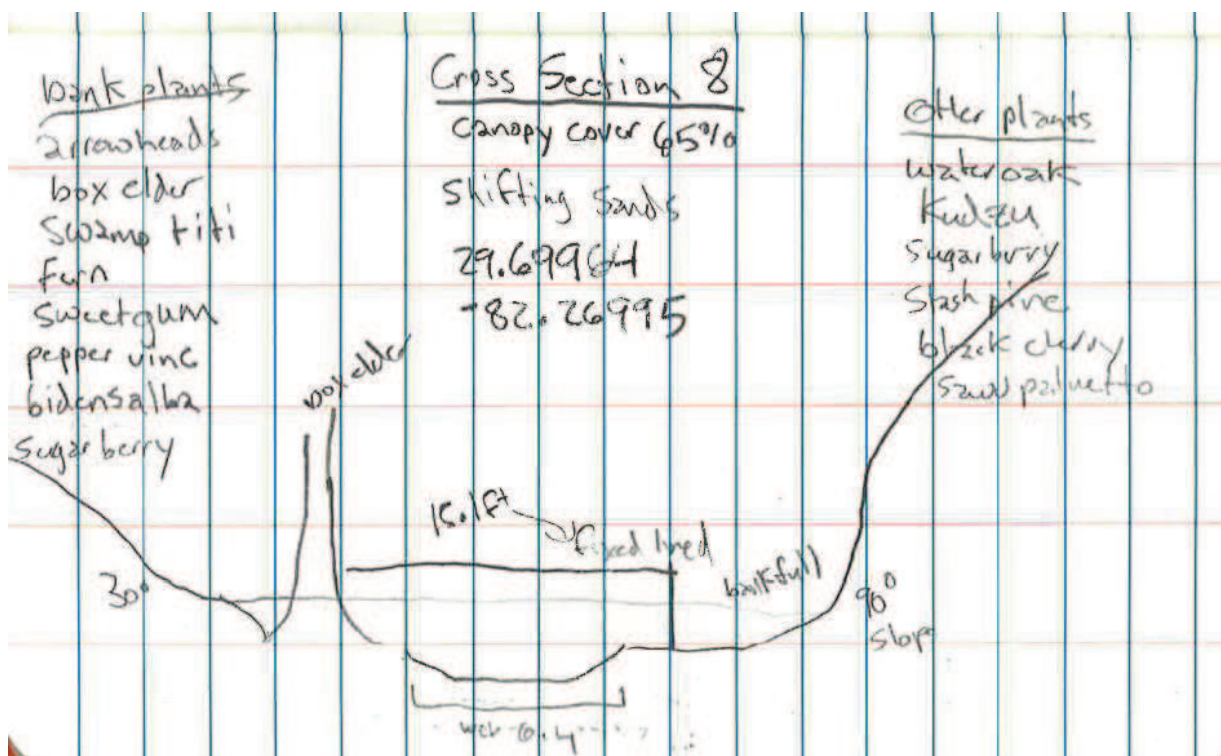 bank plants
arrowheads
box elder
Swamp titi
Fern
Sweetgum
pepper vine
bidensalba
Sugar berry
Cross Section 8
Canopy cover 65%
Shifting Sands
29.69964
-82.26995
Other plants
water oak
Kudzu
Sugarberry
Slash pine
black cherry
Saw palmetto
box elder
15.1ft
fixed lined
bankfull
30°
90°
Slope